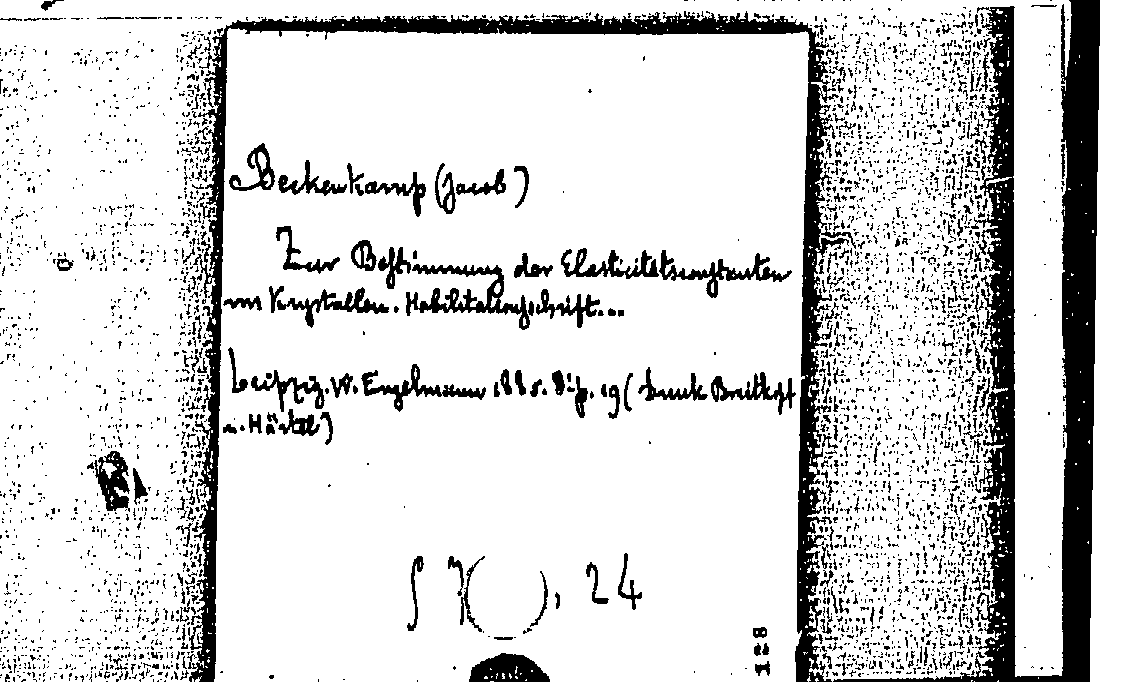 Beckenkamp (Jacob)
Zur Bestimmung der Elasticitätsconstanten
von Krystallen. Habilitationsschrift...
Leipzig. W. Engelmann 1885. 8°. p. 19 (Druck Breitkopf
u. Härtel)
( ), 24
128